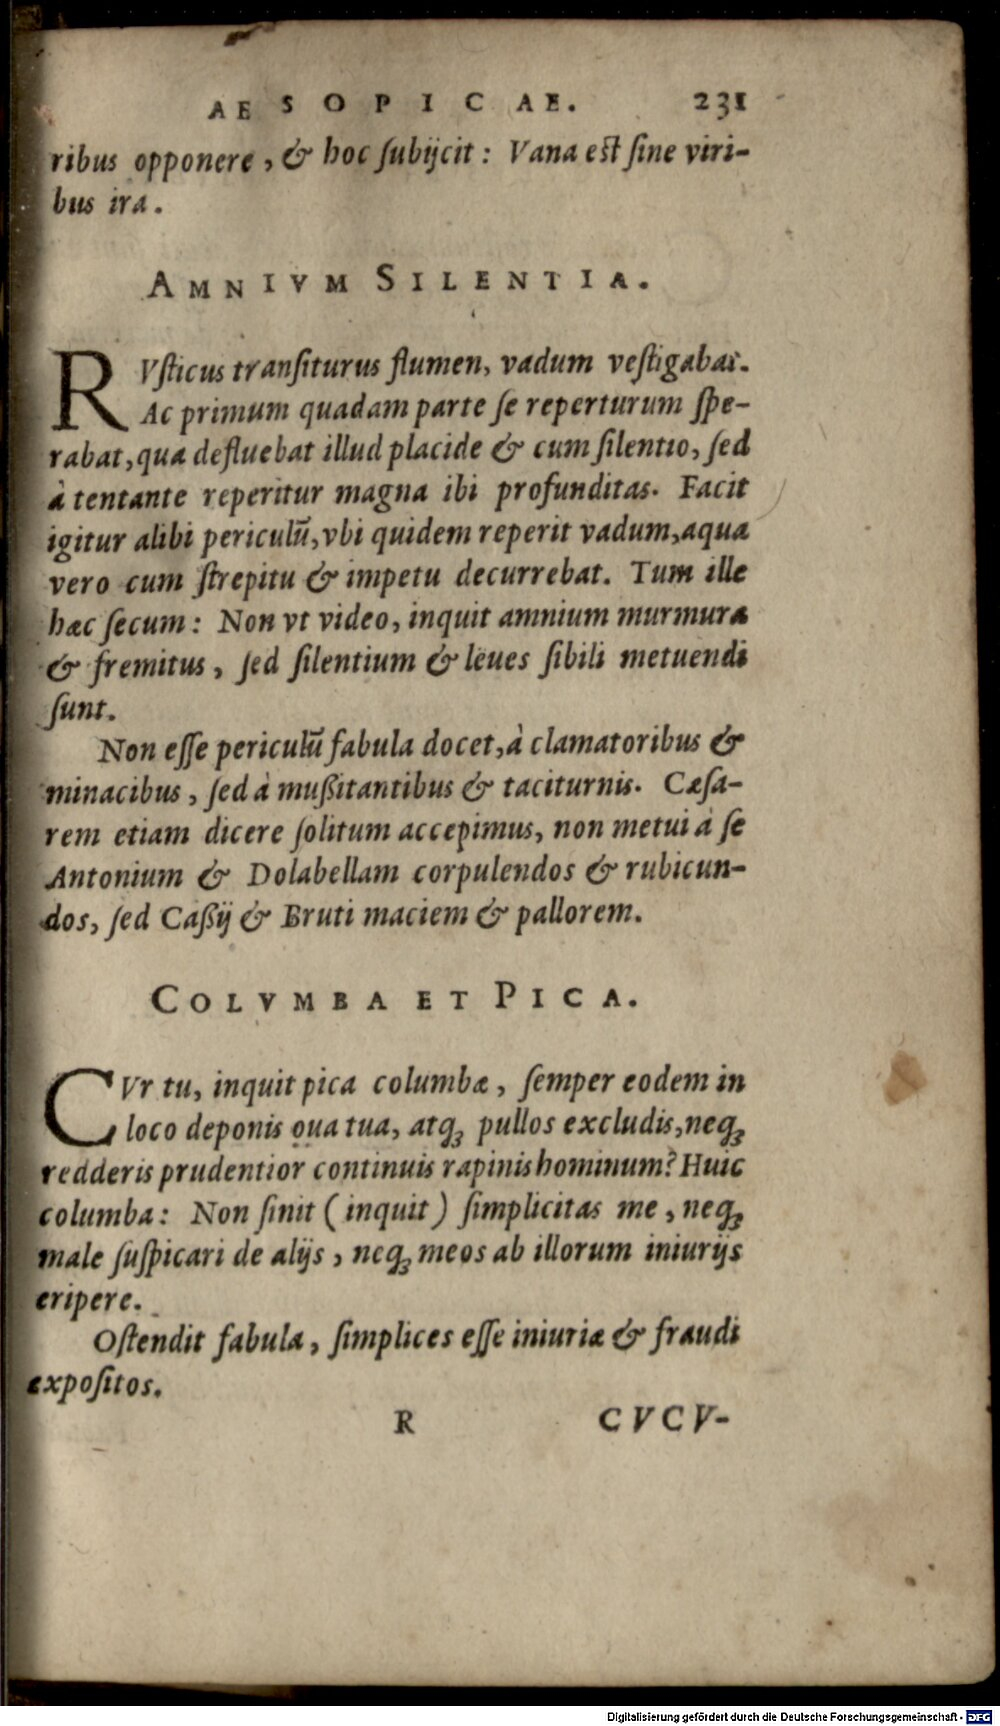 AESOPICAE. 231
ribus opponere, & hoc ſubijcit: Vana est ſine viri-
bus ira.
AMNIVM SILENTIA.
RVſticus tranſiturus flumen, vadum veſtigabat.
Ac primum quadam parte ſe reperturum ſpe-
rabat, qua defluebat illud placide & cum ſilentio, ſed
à tentante reperitur magna ibi profunditas. Facit
igitur alibi periculũ, vbi quidem reperit vadum, aqua
vero cum ſtrepitu & impetu decurrebat. Tum ille
hæc ſecum: Non vt video, inquit amnium murmura
& fremitus, ſed ſilentium & leues ſibili metuendi
ſunt.
Non eſſe periculũ fabula docet, à clamatoribus &
minacibus, ſed à mußitantibus & taciturnis. Cæſa-
rem etiam dicere ſolitum accepimus, non metui à ſe
Antonium & Dolabellam corpulendos & rubicun-
dos, ſed Caßij & Bruti maciem & pallorem.
COLVMBA ET PICA.
CVr tu, inquit pica columbæ, ſemper eodem in
loco deponis oua tua, atq; pullos excludis, neq;
redderis prudentior continuis rapinis hominum? Huic
columba: Non ſinit (inquit) ſimplicitas me, neq;
male ſuſpicari de alijs, neq; meos ab illorum iniurijs
eripere.
Oſtendit fabula, ſimplices eſſe iniuriæ & fraudi
expoſitos.
R CVCV-
Digitalisierung gefördert durch die Deutsche Forschungsgemeinschaft - DFG